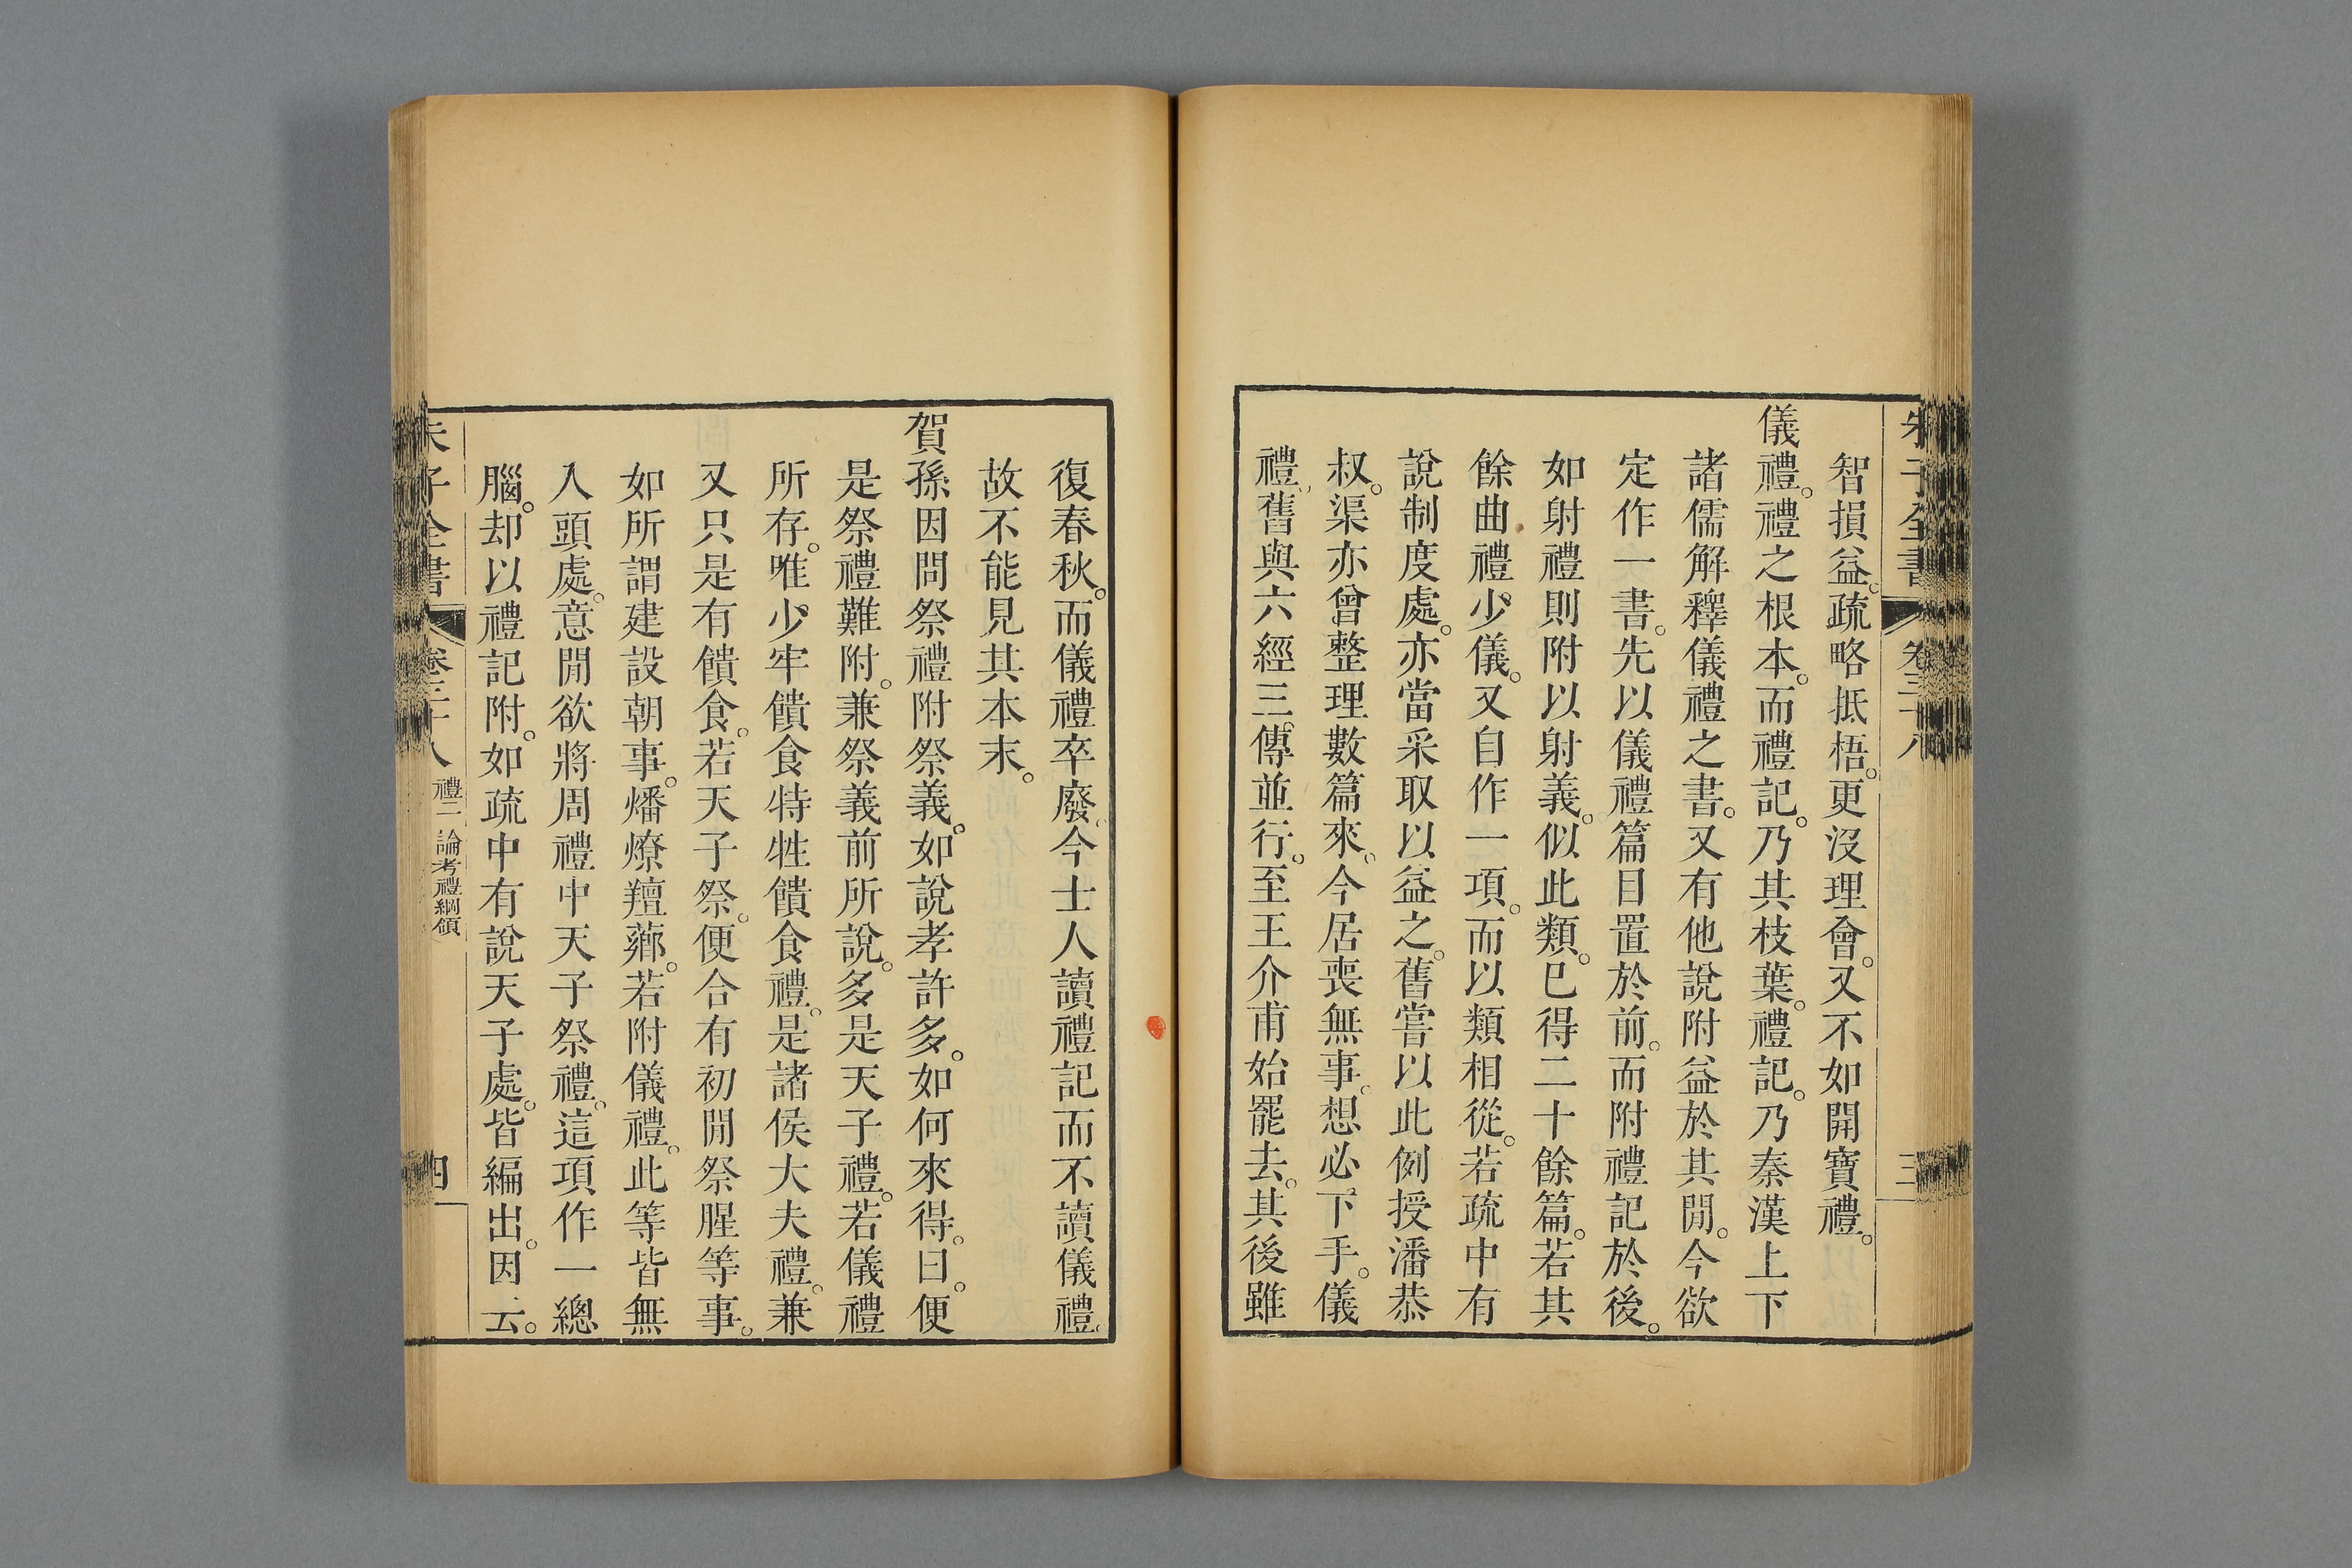 朱子全書 卷三十八 三
智損益。疏略抵梧。更沒理會。又不如開寶禮。
儀禮。禮之根本。而禮記。乃其枝葉。禮記。乃秦漢上下
諸儒解釋儀禮之書。又有他說附益於其閒。今欲
定作一書。先以儀禮篇目置於前。而附禮記於後。
如射禮則附以射義。似此類。已得二十餘篇。若其
餘曲禮少儀。又自作一項。而以類相從。若疏中有
說制度處。亦當采取以益之。舊嘗以此例授潘恭
叔。渠亦曾整理數篇來。今居喪無事。想必下手。儀
禮舊與六經三傳並行。至王介甫始罷去。其後雖
復春秋。而儀禮卒廢。今士人讀禮記而不讀儀禮。
故不能見其本末。
賀孫因問祭禮附祭義。如說孝許多。如何來得。曰。便
是祭禮難附。兼祭義前所說。多是天子禮。若儀禮
所存。唯少牢饋食特牲饋食禮。是諸侯大夫禮。兼
又只是有饋食。若天子祭。便合有初閒祭腥等事。
如所謂建設朝事。燔燎羶薌。若附儀禮。此等皆無
入頭處。意閒欲將周禮中天子祭禮。這項作一總
腦。却以禮記附。如疏中有說天子處。皆編出。因云。
朱子全書 卷三十八 禮二 論考禮綱領 四